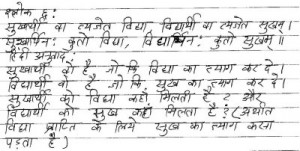 श्लोक ६:
सुखार्थी वा त्यजेत विद्या, विद्यार्थी वा त्यजेत सुखम्।
सुखार्थिन: कुतो विद्या, विद्यार्थिन: कुतो सुखम्॥
हिंदी अनुवाद
सुखार्थी वो है जो कि विद्या का त्याग कर दे।
विद्यार्थी वो है जो कि सुख का त्याग कर दे।
सुखार्थी को विद्या कहाँ मिलती है ? और
विद्यार्थी को सुख कहाँ मिलता है ? (अर्थात
विद्या प्राप्ति के लिये सुख का त्याग करना
पड़ता है )